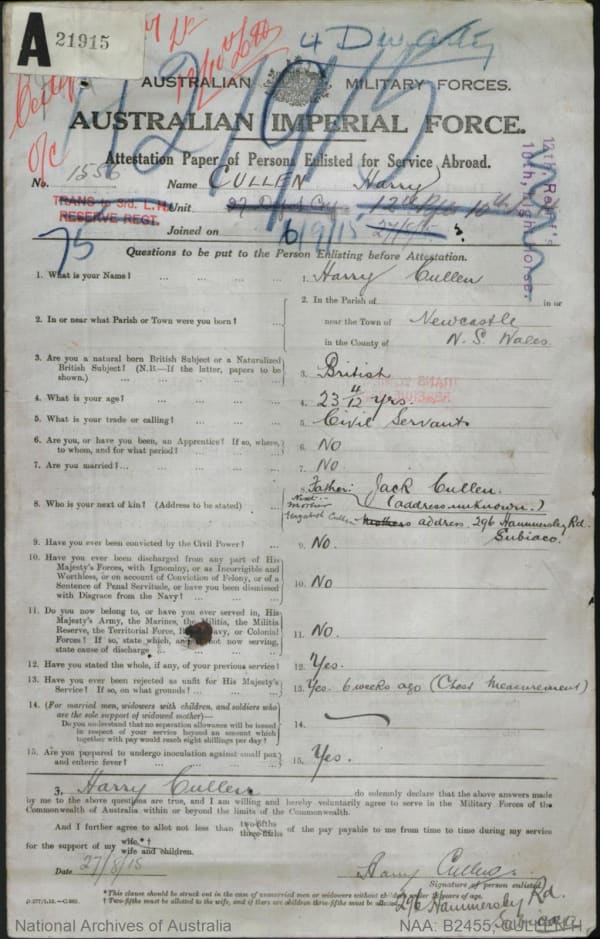 A 21915
4 Dwgs
12/9/15
AUSTRALIAN MILITARY FORCES.
AUSTRALIAN IMPERIAL FORCE.
Attestation Paper of Persons Enlisted for Service Abroad.
No. 1556 Name CULLEN Harry
TRANS to 3rd. L.H.
RESERVE REGT.
Unit
12th Reinf's
10th Light Horse.
Joined on 6/9/15 27/8/15
75
Questions to be put to the Person Enlisting before Attestation.
1. What is your Name? ... ... ... 1. Harry Cullen
2. In or near what Parish or Town were you born? ... 2. In the Parish of in or
near the Town of Newcastle
in the County of N. S. Wales.
3. Are you a natural born British Subject or a Naturalized
British Subject? (N.B.—If the latter, papers to be
shown.) ... ... ... 3. British
4. What is your age? ... ... ... 4. 23 4/12 yrs.
5. What is your trade or calling? ... ... 5. Civil Servant
6. Are you, or have you been, an Apprentice? If so, where,
to whom, and for what period? ... ... 6. No
7. Are you married? ... ... ... 7. No.
8. Who is your next of kin? (Address to be stated) ... 8. Father: Jack Cullen.
(address unknown.)
Mother
Elizabeth Cullen Mothers address. 296 Hammersley Rd.
Subiaco.
9. Have you ever been convicted by the Civil Power? ... 9. No.
10. Have you ever been discharged from any part of His
Majesty's Forces, with Ignominy, or as Incorrigible and
Worthless, or on account of Conviction of Felony, or of a
Sentence of Penal Servitude, or have you been dismissed
with Disgrace from the Navy? ... ... 10. No
11. Do you now belong to, or have you ever served in, His
Majesty's Army, the Marines, the Militia, the Militia
Reserve, the Territorial Force, Royal Navy, or Colonial
Forces? If so, state which, and if not now serving,
state cause of discharge ... ... 11. No.
12. Have you stated the whole, if any, of your previous service? 12. Yes.
13. Have you ever been rejected as unfit for His Majesty's
Service? If so, on what grounds? ... ... 13. Yes. 6 weeks ago (Chest Measurement)
14. (For married men, widowers with children, and soldiers who
are the sole support of widowed mother)—
Do you understand that no separation allowance will be issued
in respect of your service beyond an amount which
together with pay would reach eight shillings per day? 14.
15. Are you prepared to undergo inoculation against small pox
and enteric fever? ... ... ... 15. Yes.
I, Harry Cullen do solemnly declare that the above answers made
by me to the above questions are true, and I am willing and hereby voluntarily agree to serve in the Military Forces of the
Commonwealth of Australia within or beyond the limits of the Commonwealth.
And I further agree to allot not less than two-fifths three-fifths of the pay payable to me from time to time during my service
for the support of my wife.*† wife and children.
Date 27/8/15 Harry Cullen
Signature of person enlisted.
296 Hammersley Rd.
Subiaco
*This clause should be struck out in the case of unmarried men or widowers without children under 18 years of age.
† Two-fifths must be allotted to the wife, and if there are children three-fifths must be allotted.
National Archives of Australia NAA: B2455, CULLEN H